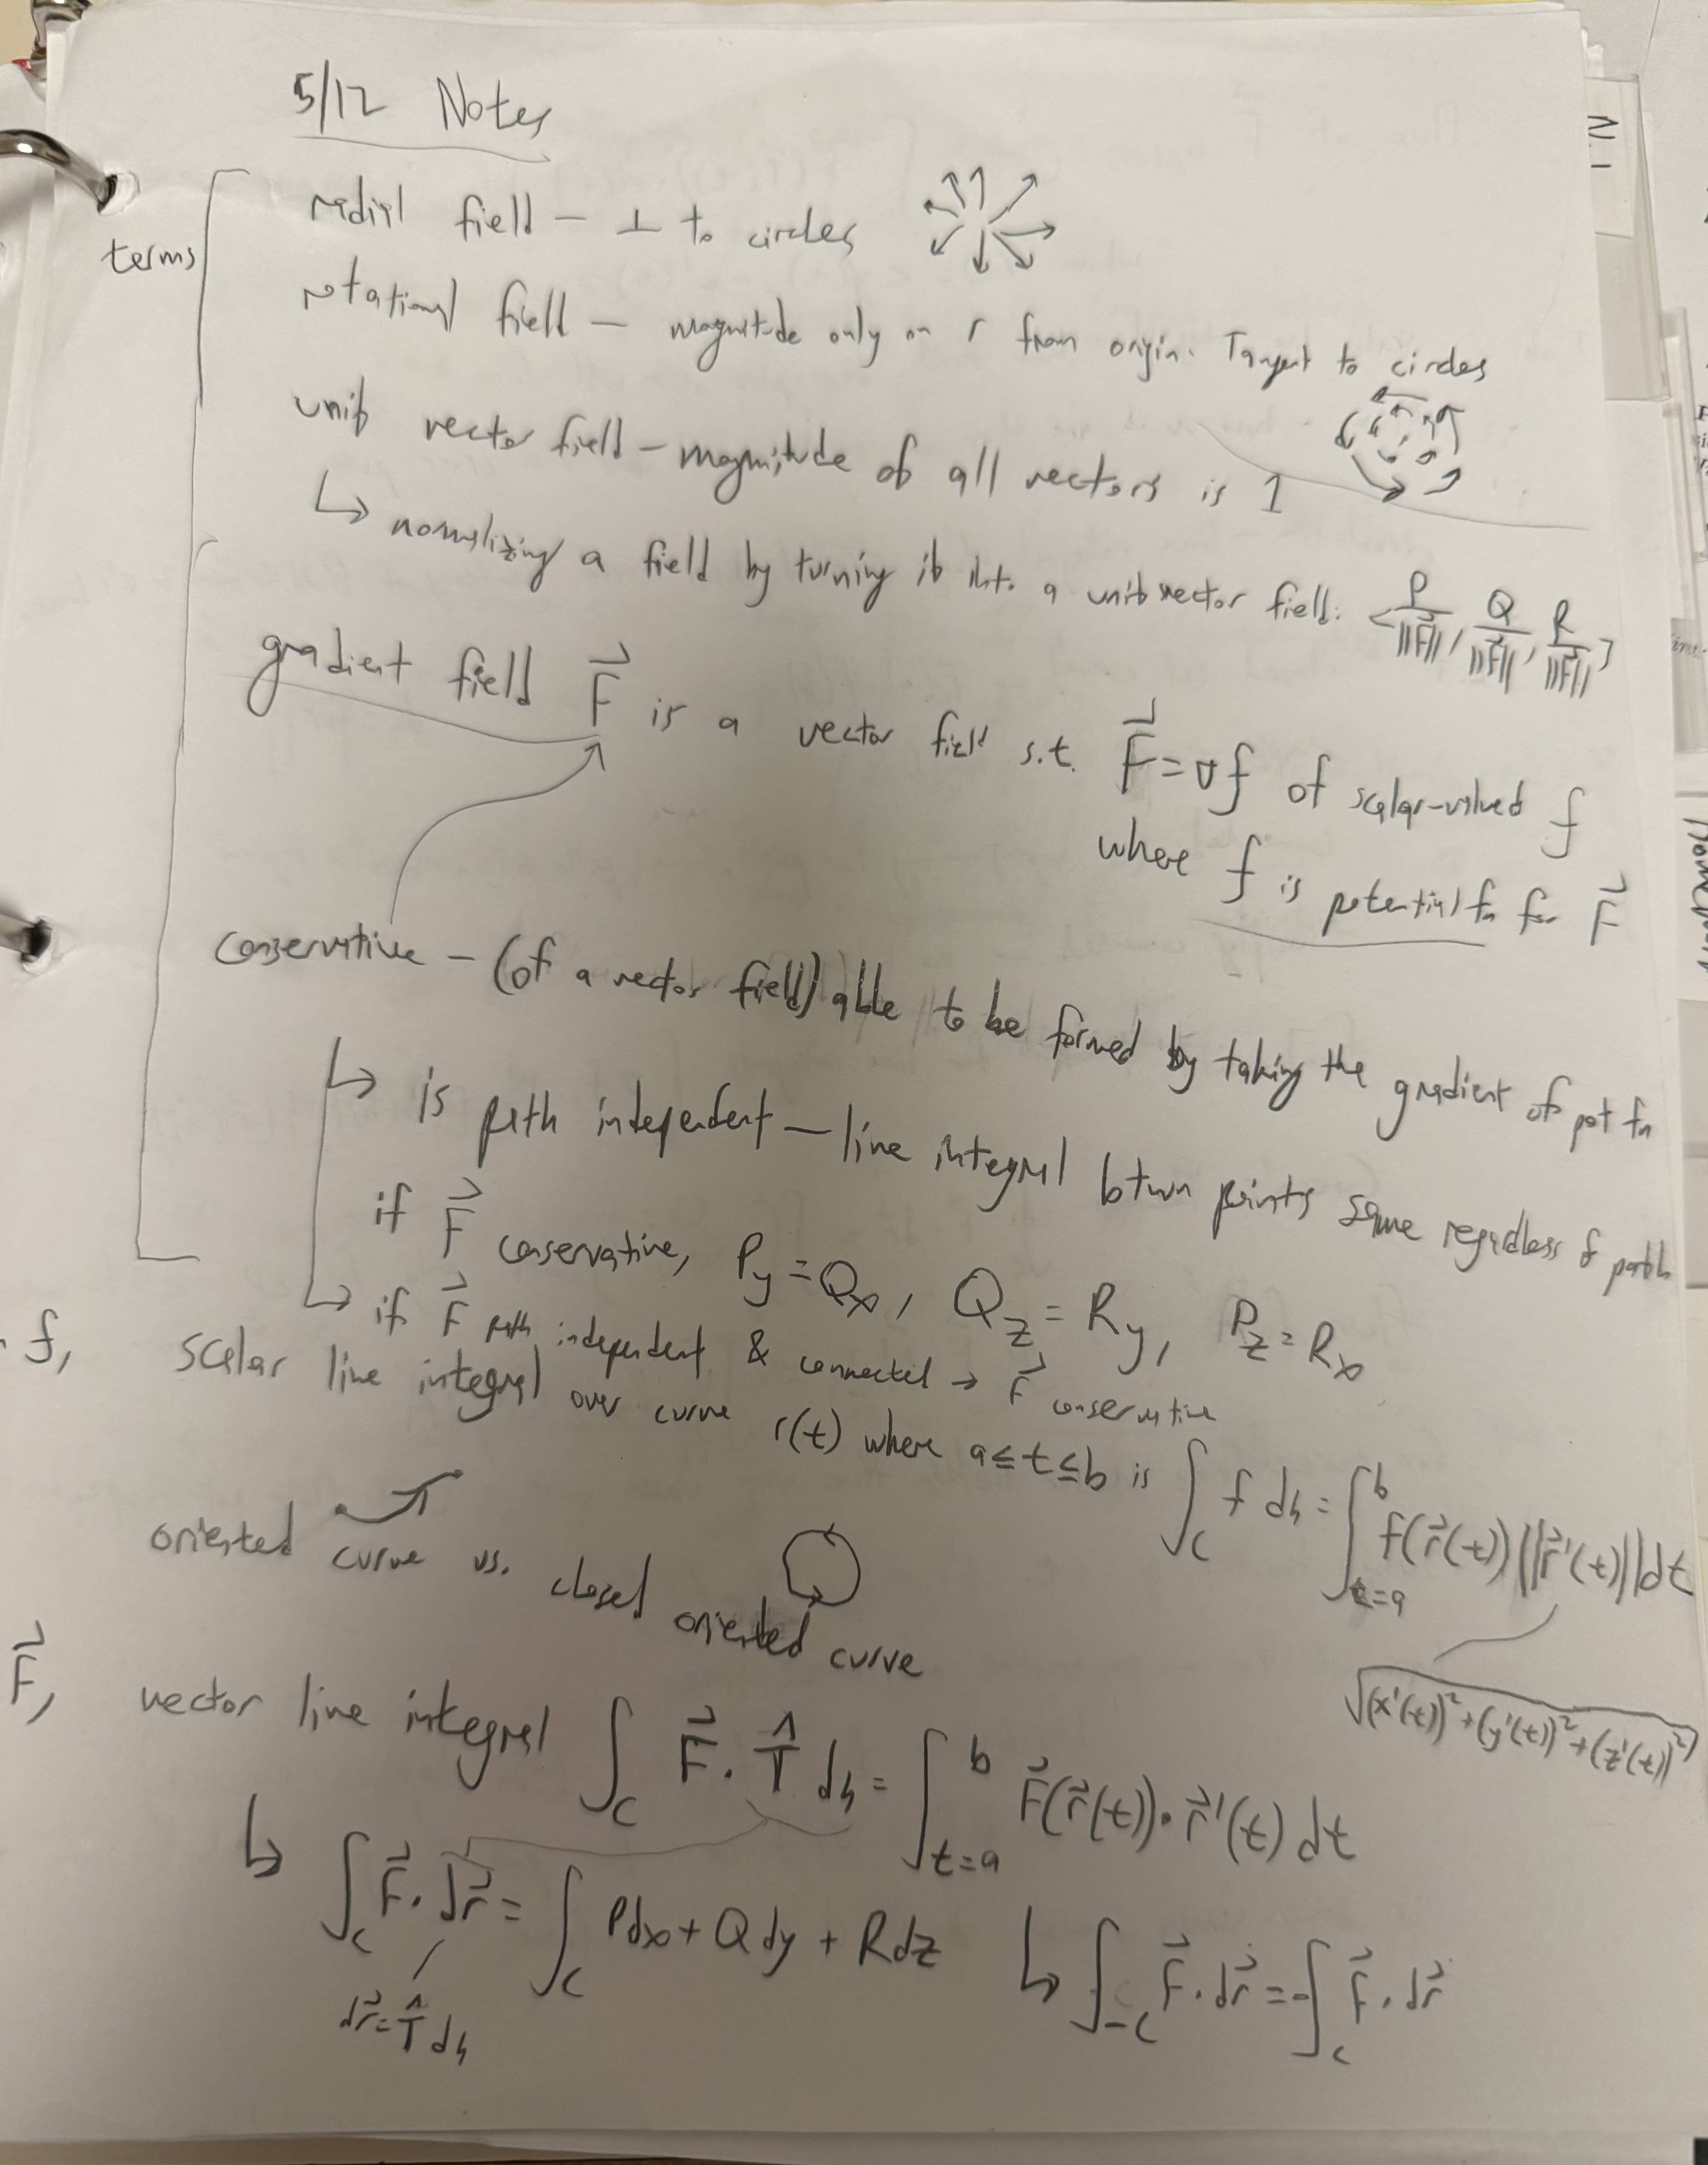 5/12 Notes
terms
radial field – ⊥ to circles
rotational field – magnitude only on r from origin. Tangent to circles
unit vector field – magnitude of all vectors is 1
↳ normalizing a field by turning it into a unit vector field. <P/||F⃗||, Q/||F⃗||, R/||F⃗||>
gradient field F⃗ is a vector field s.t. F⃗ = ∇f of scalar-valued f
where f is potential fn for F⃗
conservative – (of a vector field) able to be formed by taking the gradient of pot fn
↳ is path independent – line integral btwn points same regardless of path
if F⃗ conservative, P_y = Q_x, Q_z = R_y, P_z = R_x
↳ if F⃗ path independent & connected → F⃗ conservative
f, scalar line integral over curve r(t) where a ≤ t ≤ b is ∫_C f ds = ∫_{t=a}^b f(r⃗(t)) ||r⃗'(t)|| dt
√((x'(t))² + (y'(t))² + (z'(t))²)
oriented curve vs. closed oriented curve
F⃗, vector line integral ∫_C F⃗ · T̂ ds = ∫_{t=a}^b F⃗(r⃗(t)) · r⃗'(t) dt
↳ ∫_C F⃗ · dr⃗ = ∫_C Pdx + Qdy + Rdz
↳ ∫_{-C} F⃗ · dr⃗ = -∫_C F⃗ · dr⃗
dr⃗ = T̂ ds